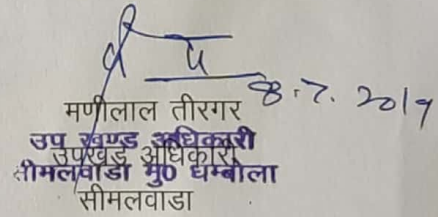 8.7.2019
मणीलाल तीरगर
उप खण्ड अधिकारी
उपखंड अधिकारी
सीमलवाडा मु0 धम्बोला
सीमलवाडा